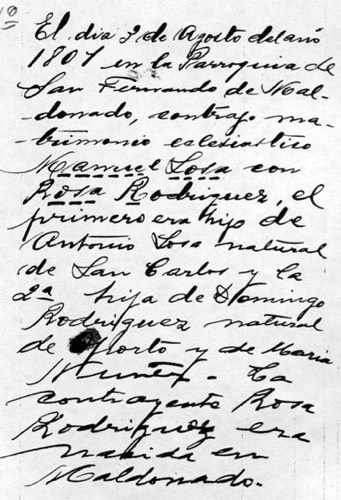 10
El dia 3 de Agosto del año
1807 en la Parroquia de
San Fernando de Mal-
donado, contrajo ma-
trimonio eclesiastico
Manuel Sosa con
Rosa Rodriguez, el
primero era hijo de
Antonio Sosa natural
de San Carlos y la
2ª hija de Domingo
Rodriguez natural
de Porto y de Maria
Nuñez - La
contrayente Rosa
Rodriguez era
nacida en
Maldonado.